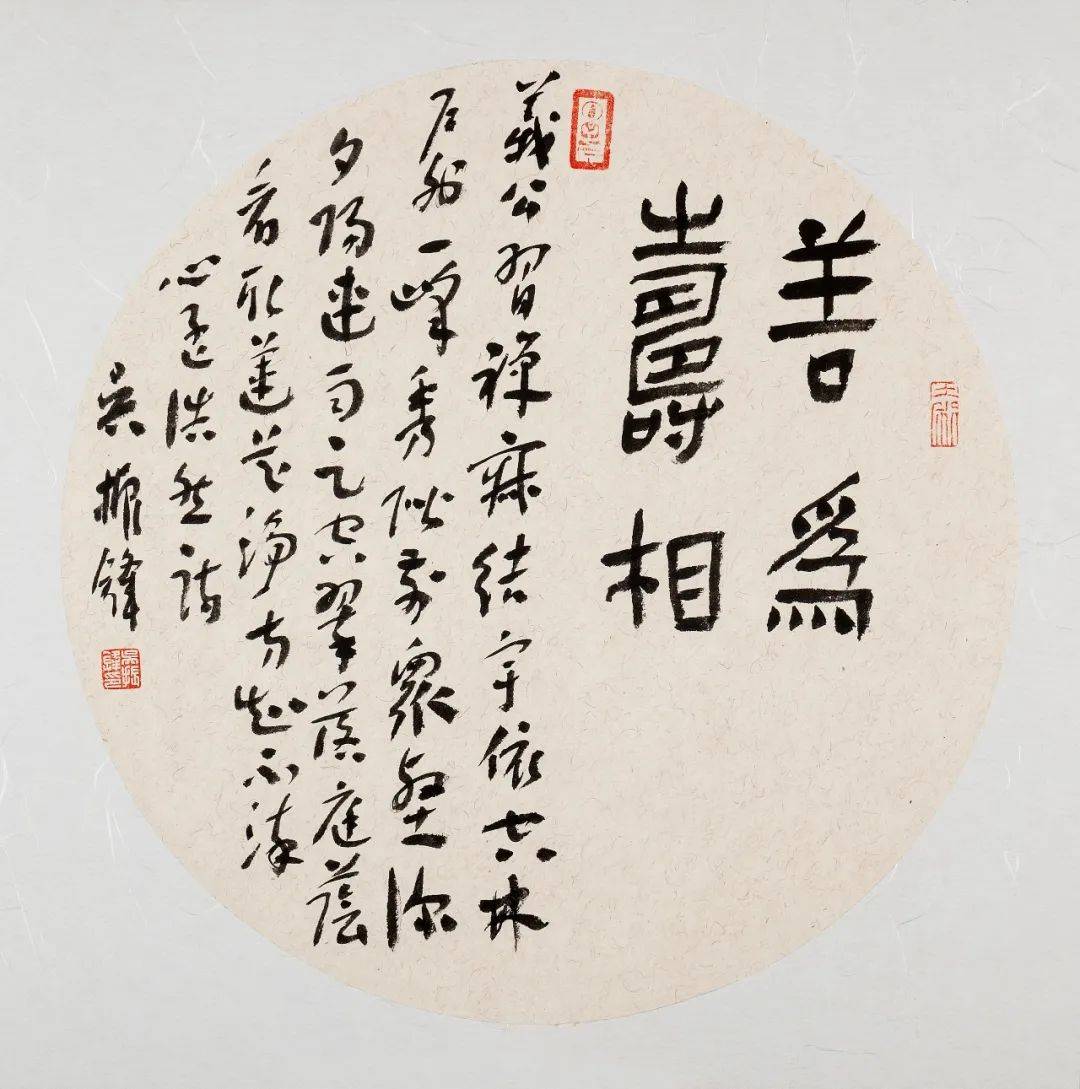 善為
壽相
義公習禪寂結宇依空林
戶外一峰秀階前眾壑深
夕陽連雨足空翠落庭蔭
看取蓮花淨方知不染
心孟浩然詩
吳振鋒